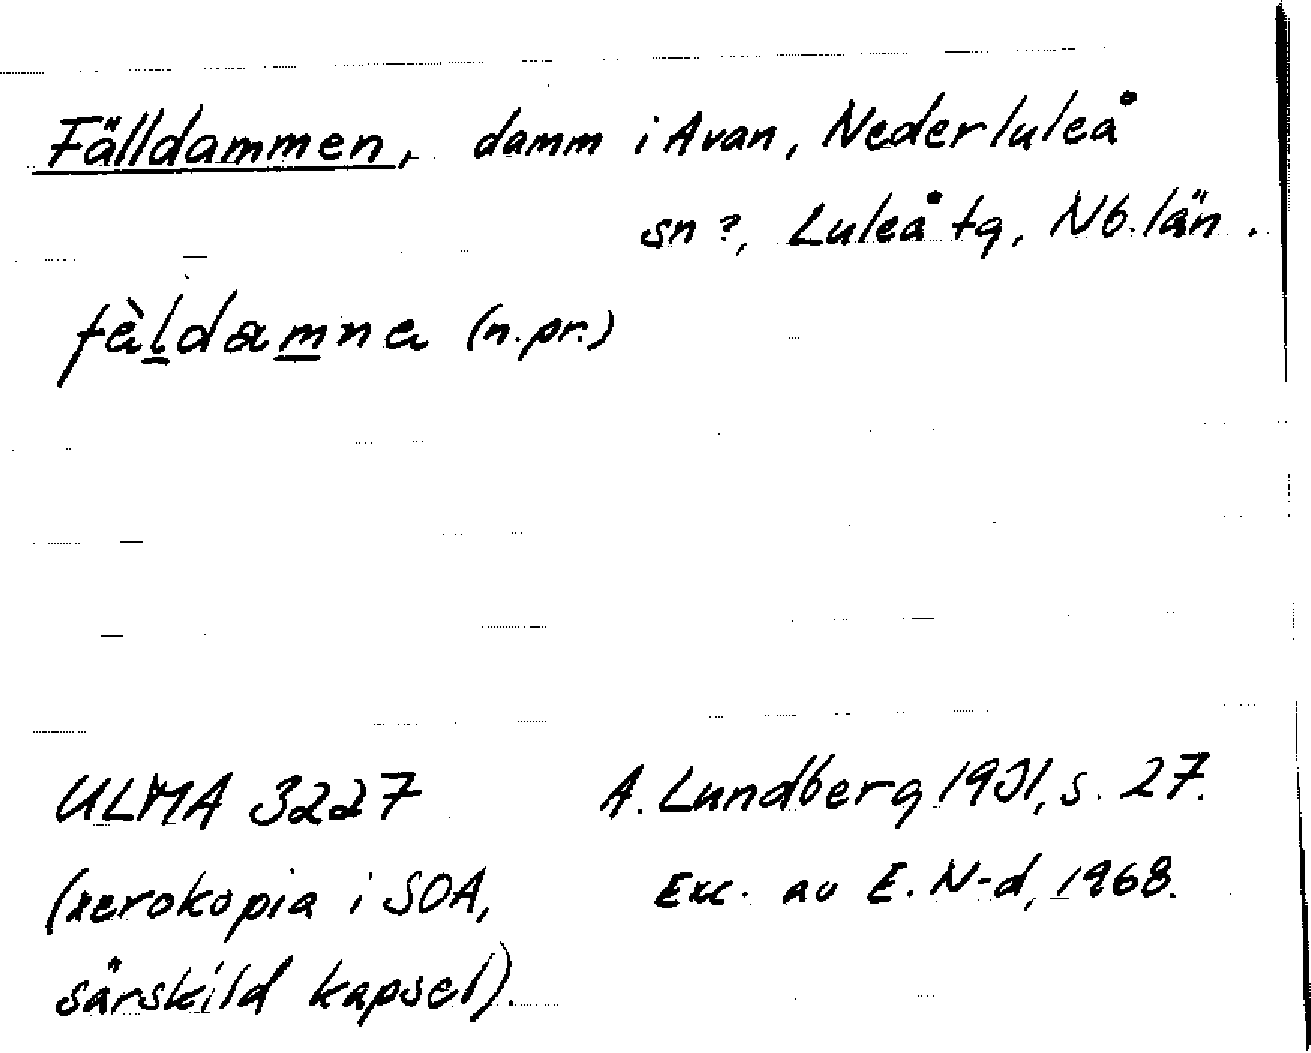 Fälldammen, damm i Avan, Nederluleå
sn?, Luleå tg, Nb. län.
fèldamna (n.pr.)
ULMA 3227 A. Lundberg 1931, s. 27.
(xerokopia i SOA, Exc. av E. N-d, 1968.
särskild kapsel).